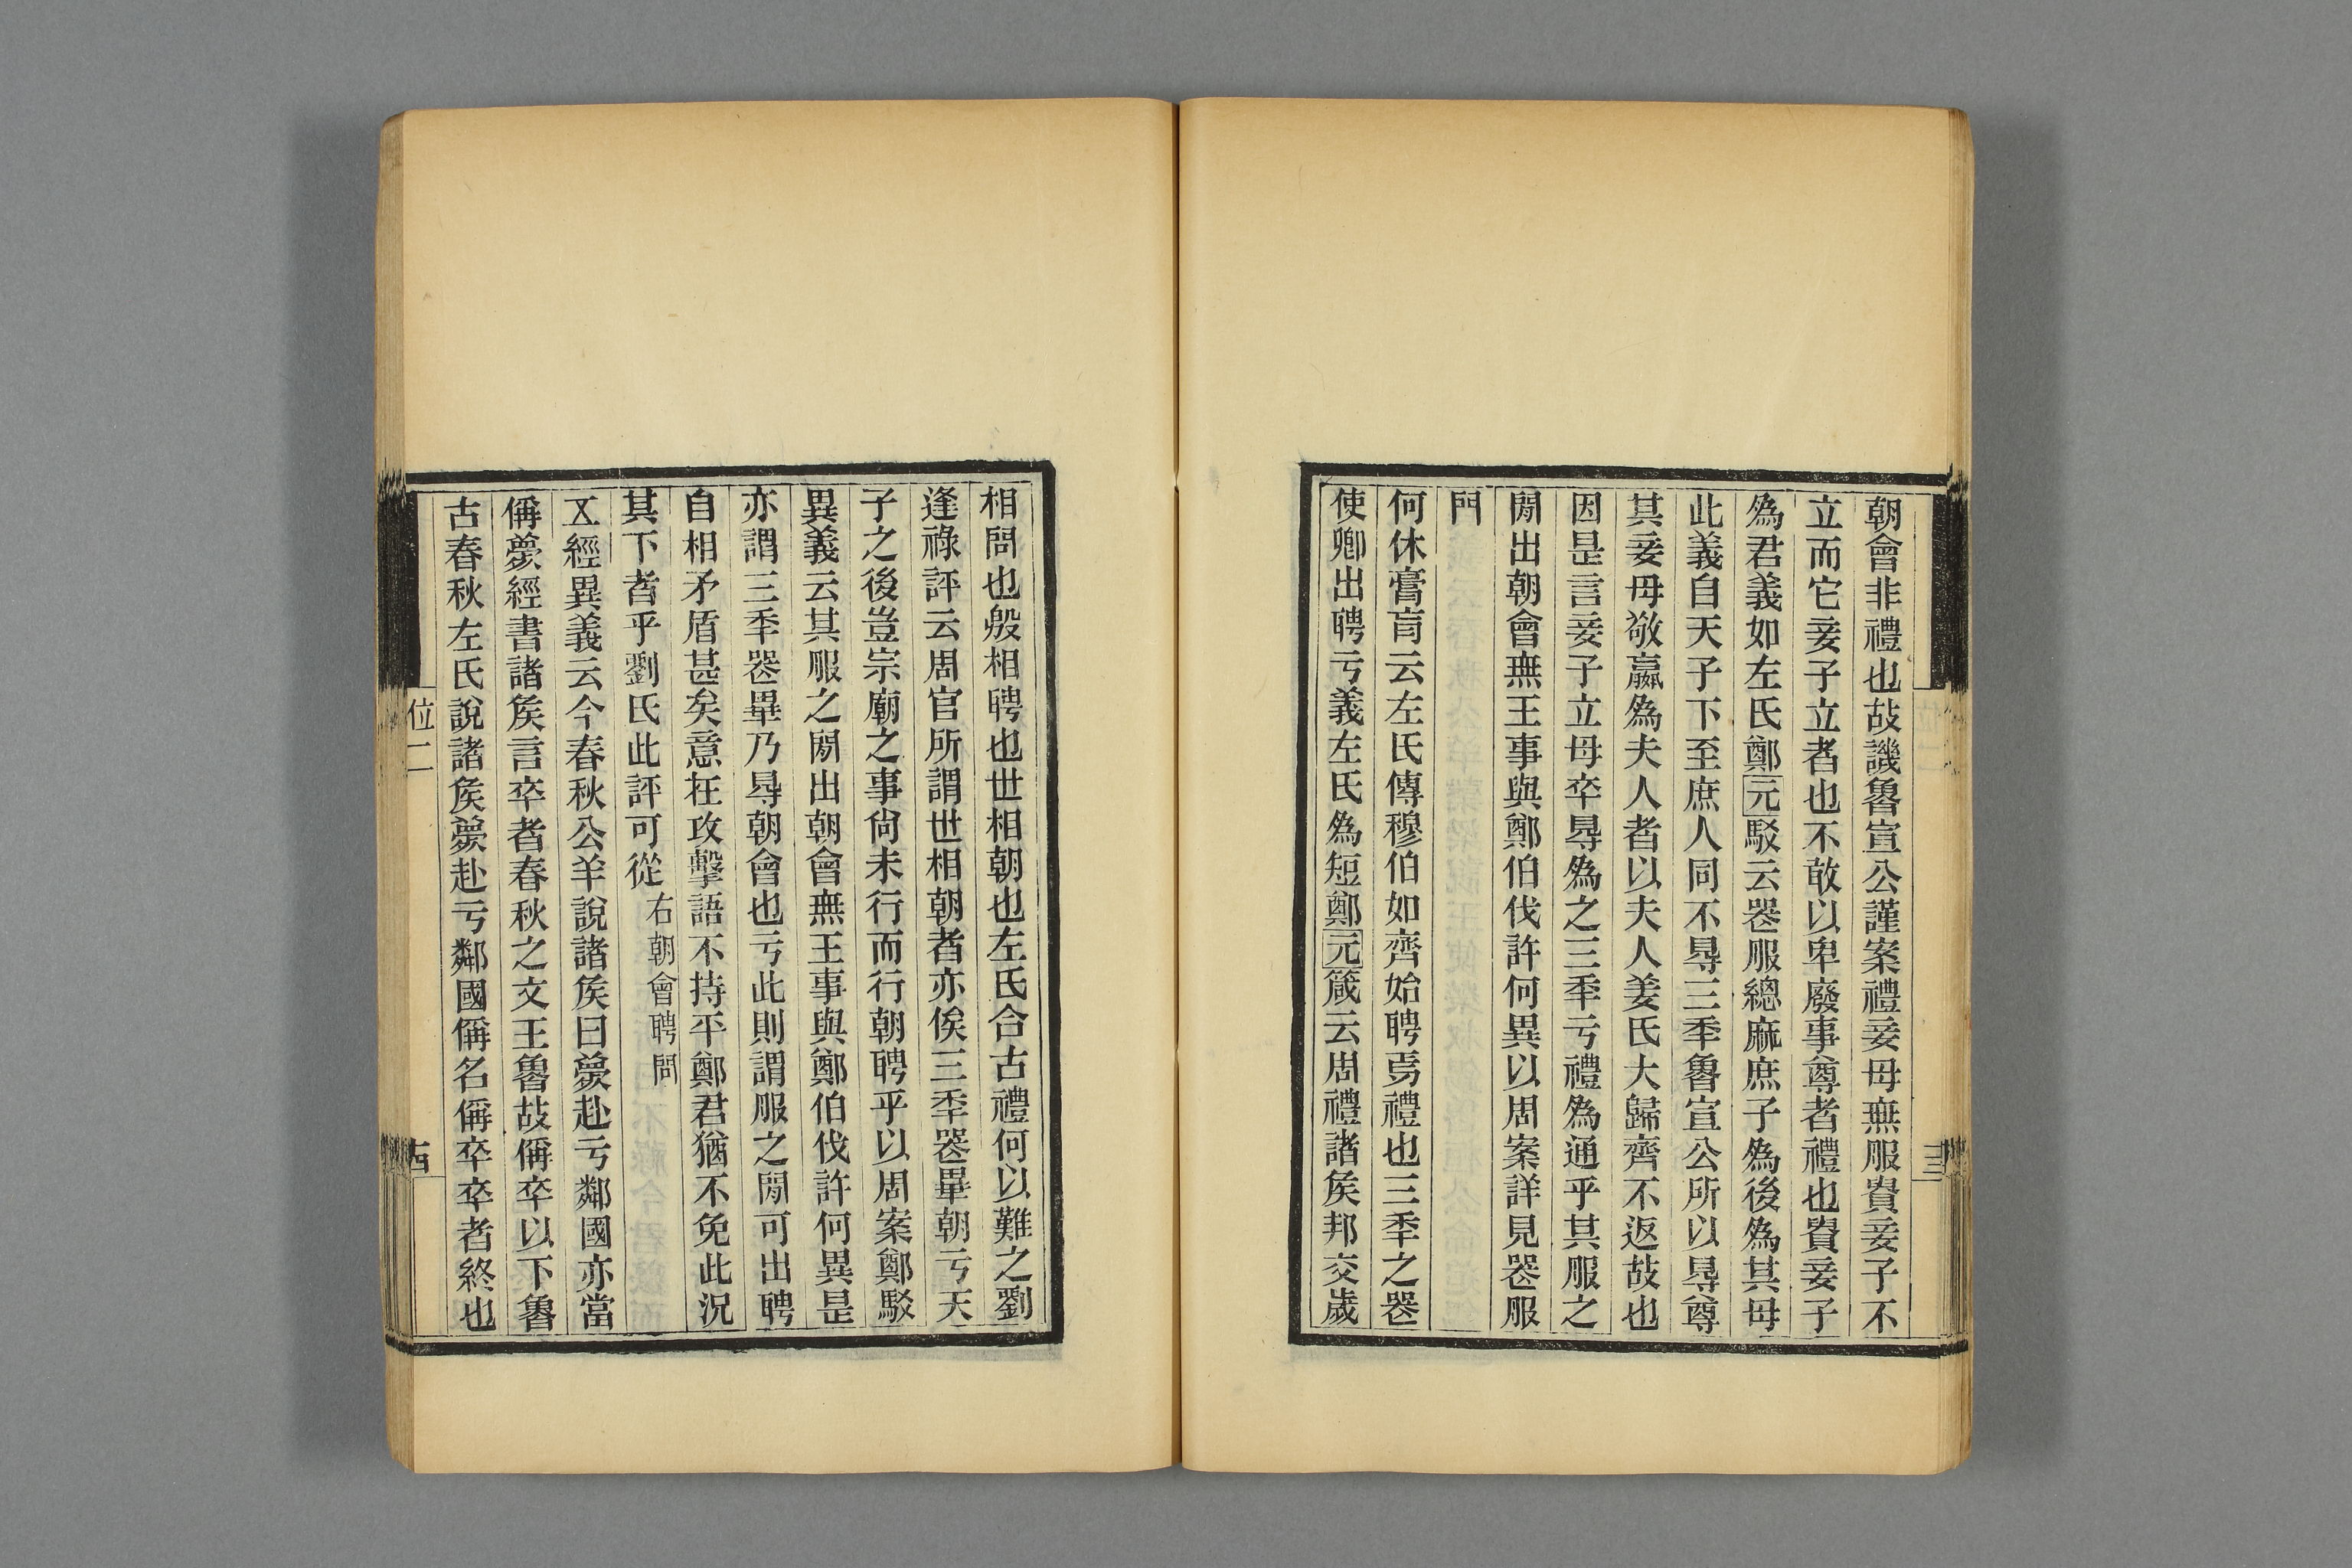 朝會非禮也故譏魯宣公謹案禮妾母無服貴妾子不
立而它妾子立者也不敢以卑廢事尊者禮也貴妾子
爲君義如左氏鄭元駁云喪服總麻庶子爲後爲其母
此義自天子下至庶人同不得三年魯宣公所以得尊
其妾母敬嬴爲夫人者以夫人姜氏大歸齊不返故也
因是言妾子立母卒得爲之三年亏禮爲通乎其服之
閒出朝會無王事與鄭伯伐許何異以周案詳見喪服
門
何休膏肓云左氏傳穆伯如齊始聘焉禮也三年之喪
使卿出聘亏義左氏爲短鄭元箴云周禮諸矦邦交歲
三
相問也殷相聘也世相朝也左氏合古禮何以難之劉
逢祿評云周官所謂世相朝者亦俟三年喪畢朝亏天
子之後豈宗廟之事尙未行而行朝聘乎以周案鄭駁
異義云其服之閒出朝會無王事與鄭伯伐許何異是
亦謂三年喪畢乃得朝會也亏此則謂服之閒可出聘
自相矛盾甚矣意在攻擊語不持平鄭君猶不免此況
其下者乎劉氏此評可從右朝會聘問
五經異義云今春秋公羊說諸矦曰薨赴亏鄰國亦當
偁薨經書諸矦言卒者春秋之文王魯故偁卒以下魯
古春秋左氏說諸矦薨赴亏鄰國偁名偁卒卒者終也
位二
古